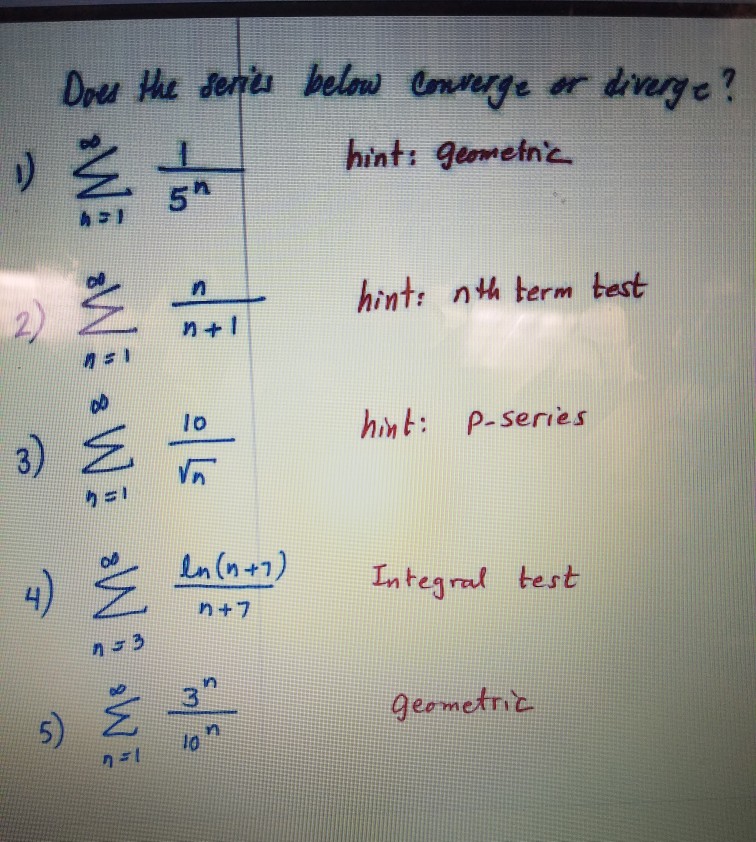 Does the series below converge or diverge?
1) ∞ ∑ n=1 1/5^n hint: geometric
2) ∞ ∑ n=1 n/n+1 hint: nth term test
3) ∞ ∑ n=1 10/√n hint: p-series
4) ∞ ∑ n=3 ln(n+7)/n+7 Integral test
5) ∞ ∑ n=1 3^n/10^n geometric